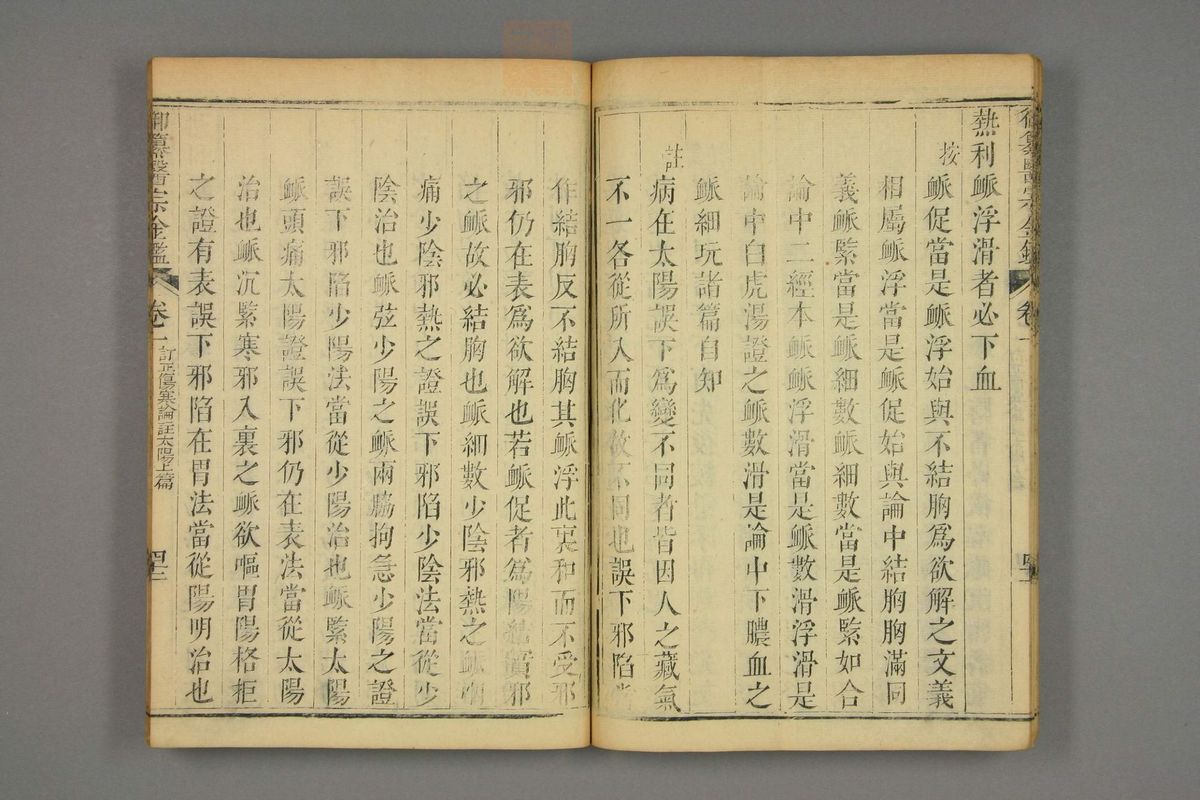 熱利衇浮滑者必下血
按
衇促當是衇浮始與不結胸爲欲解之文義
相屬衇浮當是衇促始與論中結胸胸滿同
義衇緊當是衇細數衇細數當是衇緊如合
論中二經本衇浮滑當是衇數滑浮滑是
論中白虎湯證之衇數滑是論中下膿血之
衇細玩諸篇自知
註
病在太陽誤下爲變不同者皆因人之藏氣
不一各從所入而化故不同也誤下邪陷
作結胸反不結胸其衇浮此裏和而不受邪
邪仍在表爲欲解也若衇促者爲陽結實邪
之衇故必結胸也衇細數少陰邪熱之衇咽
痛少陰邪熱之證誤下邪陷少陰法當從少
陰治也衇弦少陽之衇兩脇拘急少陽之證
誤下邪陷少陽法當從少陽治也衇緊太陽
衇頭痛太陽證誤下邪仍在表法當從太陽
治也衇沉緊寒邪入裏之衇欲嘔胃陽格拒
之證有表誤下邪陷在胃法當從陽明治也
御纂醫宗金鑑
卷一
訂正傷寒論註太陽上篇